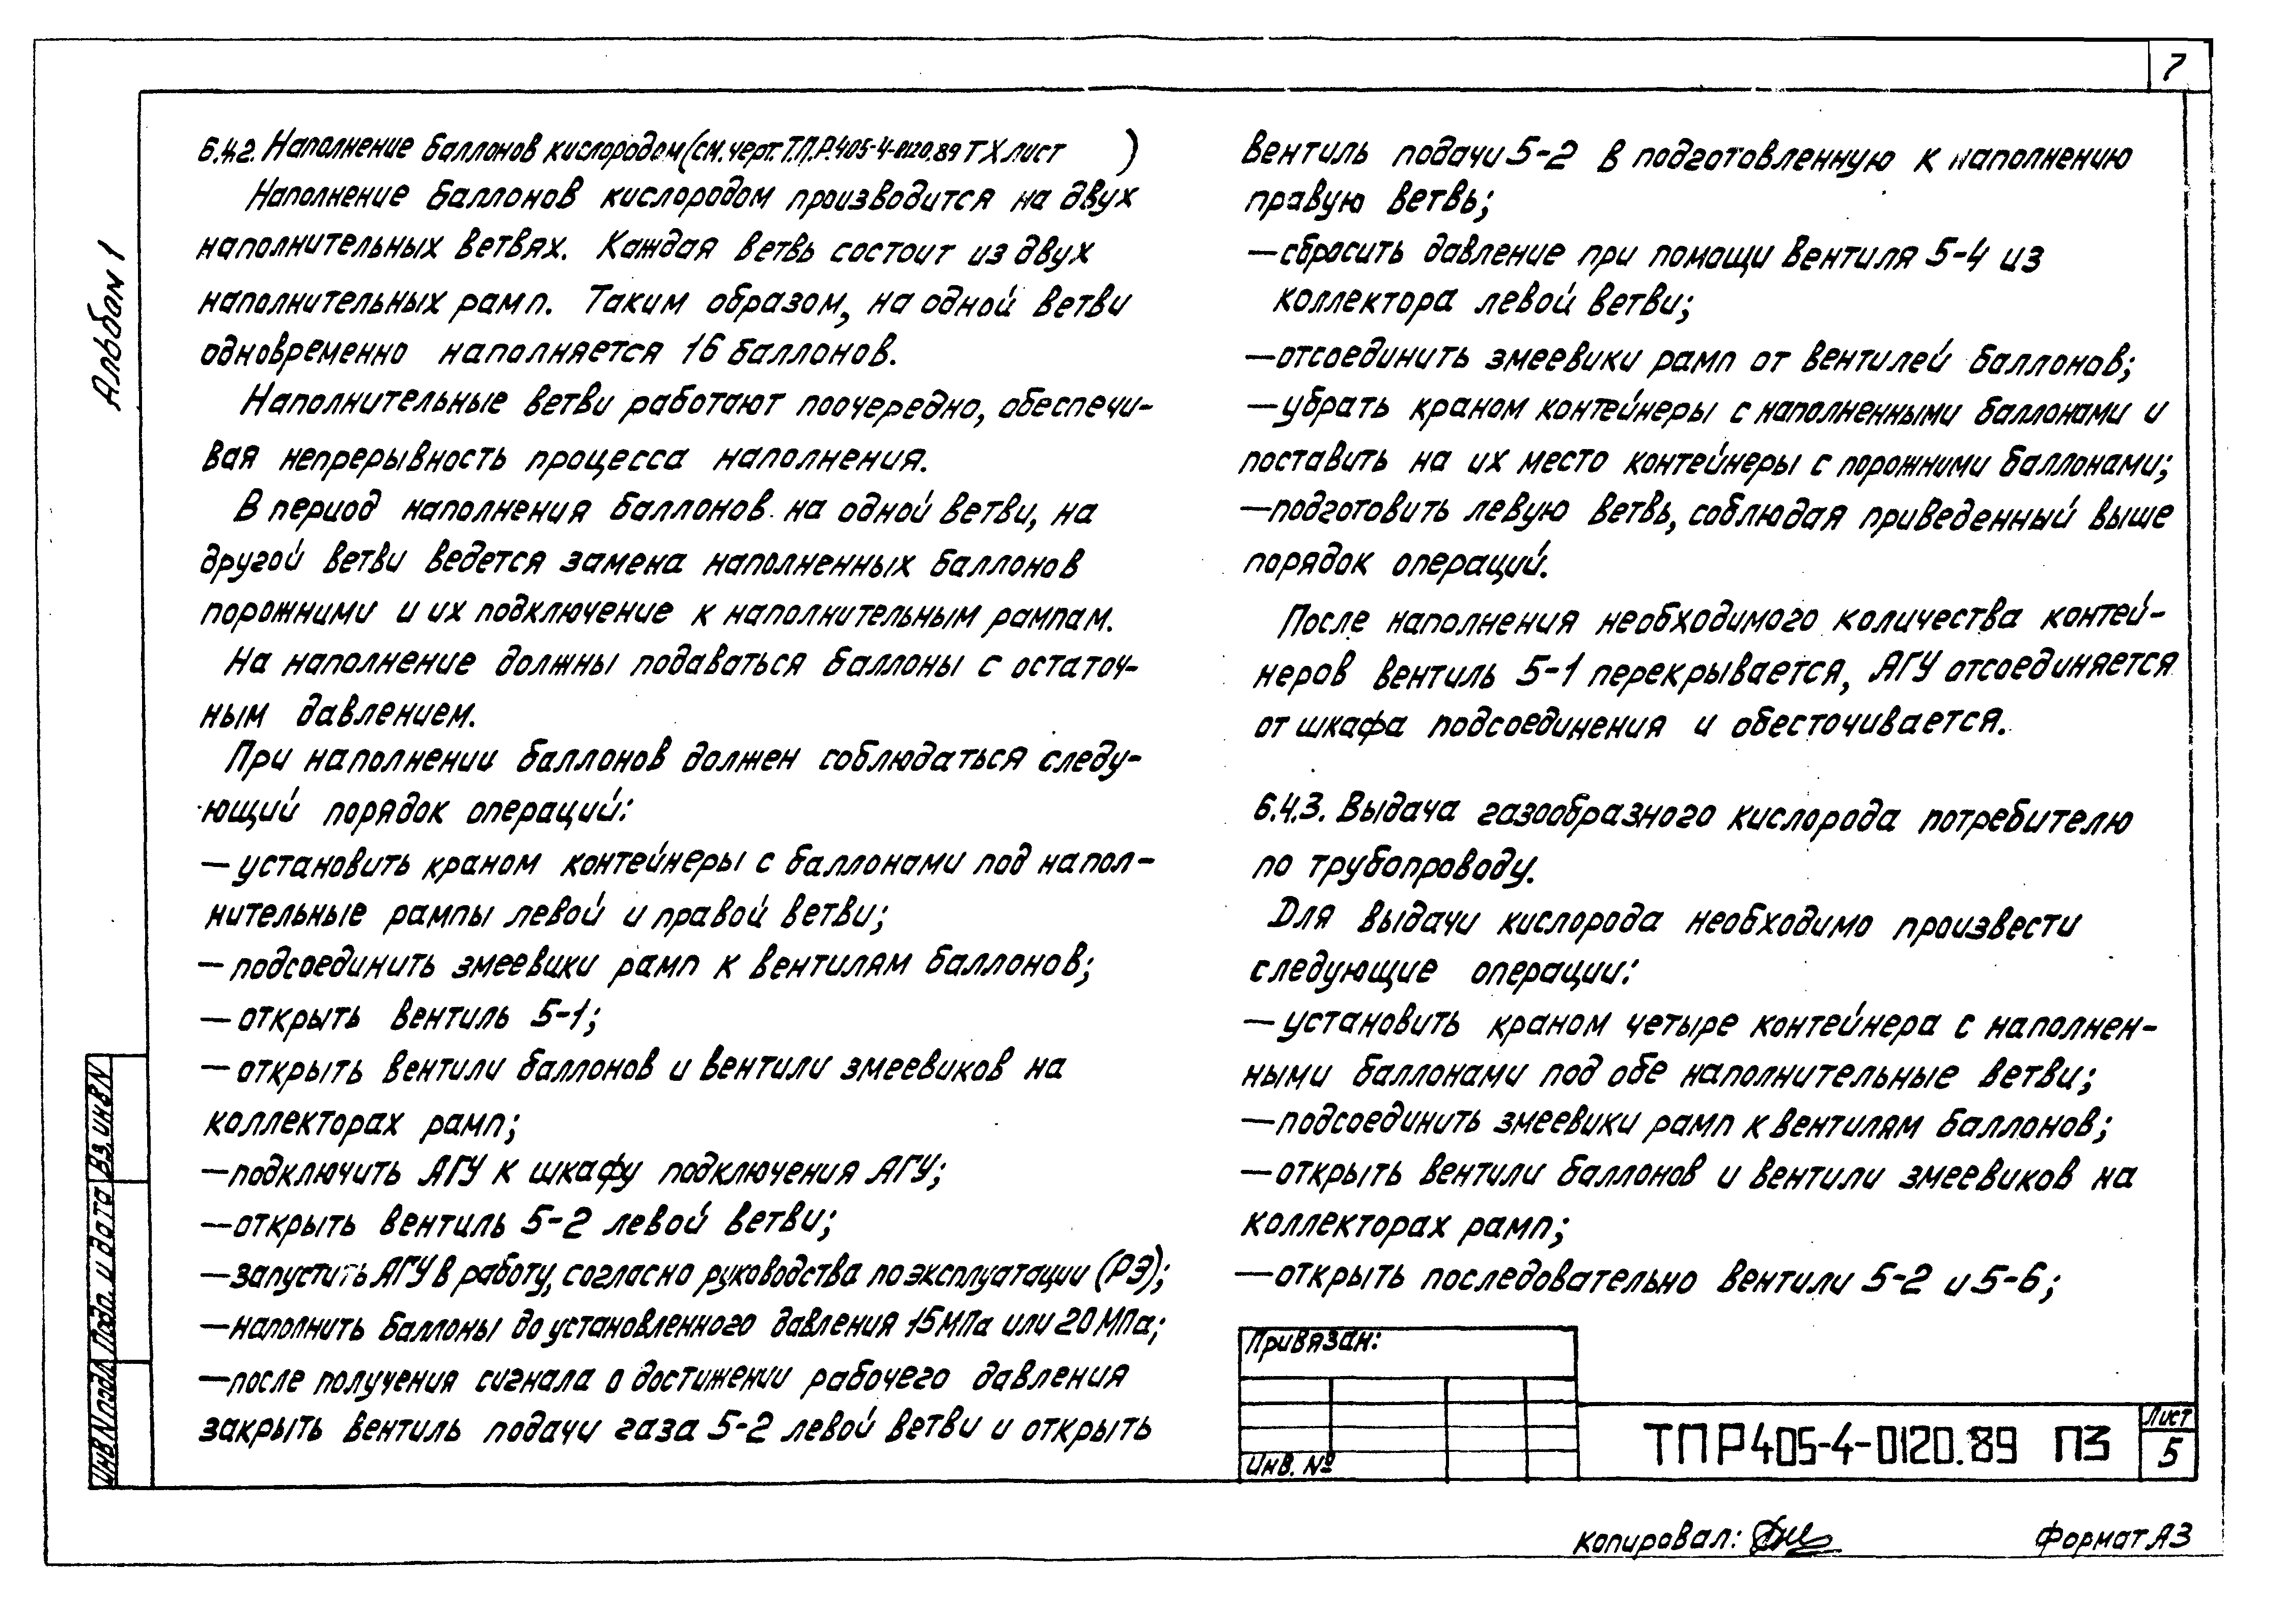 7
Альбом 1
6.4.2. Наполнение баллонов кислородом (см. черт. Т.П.Р.405-4-0120.89 ТХ лист )
Наполнение баллонов кислородом производится на двух
наполнительных ветвях. Каждая ветвь состоит из двух
наполнительных рамп. Таким образом, на одной ветви
одновременно наполняется 16 баллонов.
Наполнительные ветви работают поочередно, обеспечи-
вая непрерывность процесса наполнения.
В период наполнения баллонов на одной ветви, на
другой ветви ведется замена наполненных баллонов
порожними и их подключение к наполнительным рампам.
На наполнение должны подаваться баллоны с остаточ-
ным давлением.
При наполнении баллонов должен соблюдаться следу-
ющий порядок операций:
— установить краном контейнеры с баллонами под напол-
нительные рампы левой и правой ветви;
— подсоединить змеевики рамп к вентилям баллонов;
— открыть вентиль 5-1;
— открыть вентили баллонов и вентили змеевиков на
коллекторах рамп;
— подключить АГУ к шкафу подключения АГУ;
— открыть вентиль 5-2 левой ветви;
— запустить АГУ в работу, согласно руководства по эксплуатации (РЭ);
— наполнить баллоны до установленного давления 15 МПа или 20 МПа;
— после получения сигнала о достижении рабочего давления
закрыть вентиль подачи газа 5-2 левой ветви и открыть
вентиль подачи 5-2 в подготовленную к наполнению
правую ветвь;
— сбросить давление при помощи вентиля 5-4 из
коллектора левой ветви;
— отсоединить змеевики рамп от вентилей баллонов;
— убрать краном контейнеры с наполненными баллонами и
поставить на их место контейнеры с порожними баллонами;
— подготовить левую ветвь, соблюдая приведенный выше
порядок операций.
После наполнения необходимого количества контей-
неров вентиль 5-1 перекрывается, АГУ отсоединяется
от шкафа подсоединения и обесточивается.
6.4.3. Выдача газообразного кислорода потребителю
по трубопроводу.
Для выдачи кислорода необходимо произвести
следующие операции:
— установить краном четыре контейнера с наполнен-
ными баллонами под обе наполнительные ветви;
— подсоединить змеевики рамп к вентилям баллонов;
— открыть вентили баллонов и вентили змеевиков на
коллекторах рамп;
— открыть последовательно вентили 5-2 и 5-6;
Привязан:
Инв. №
ТПР405-4-0120.89 ПЗ
Лист
5
Инв N подл. Подп. и дата Вз. инв N
Копировал:
Формат А3